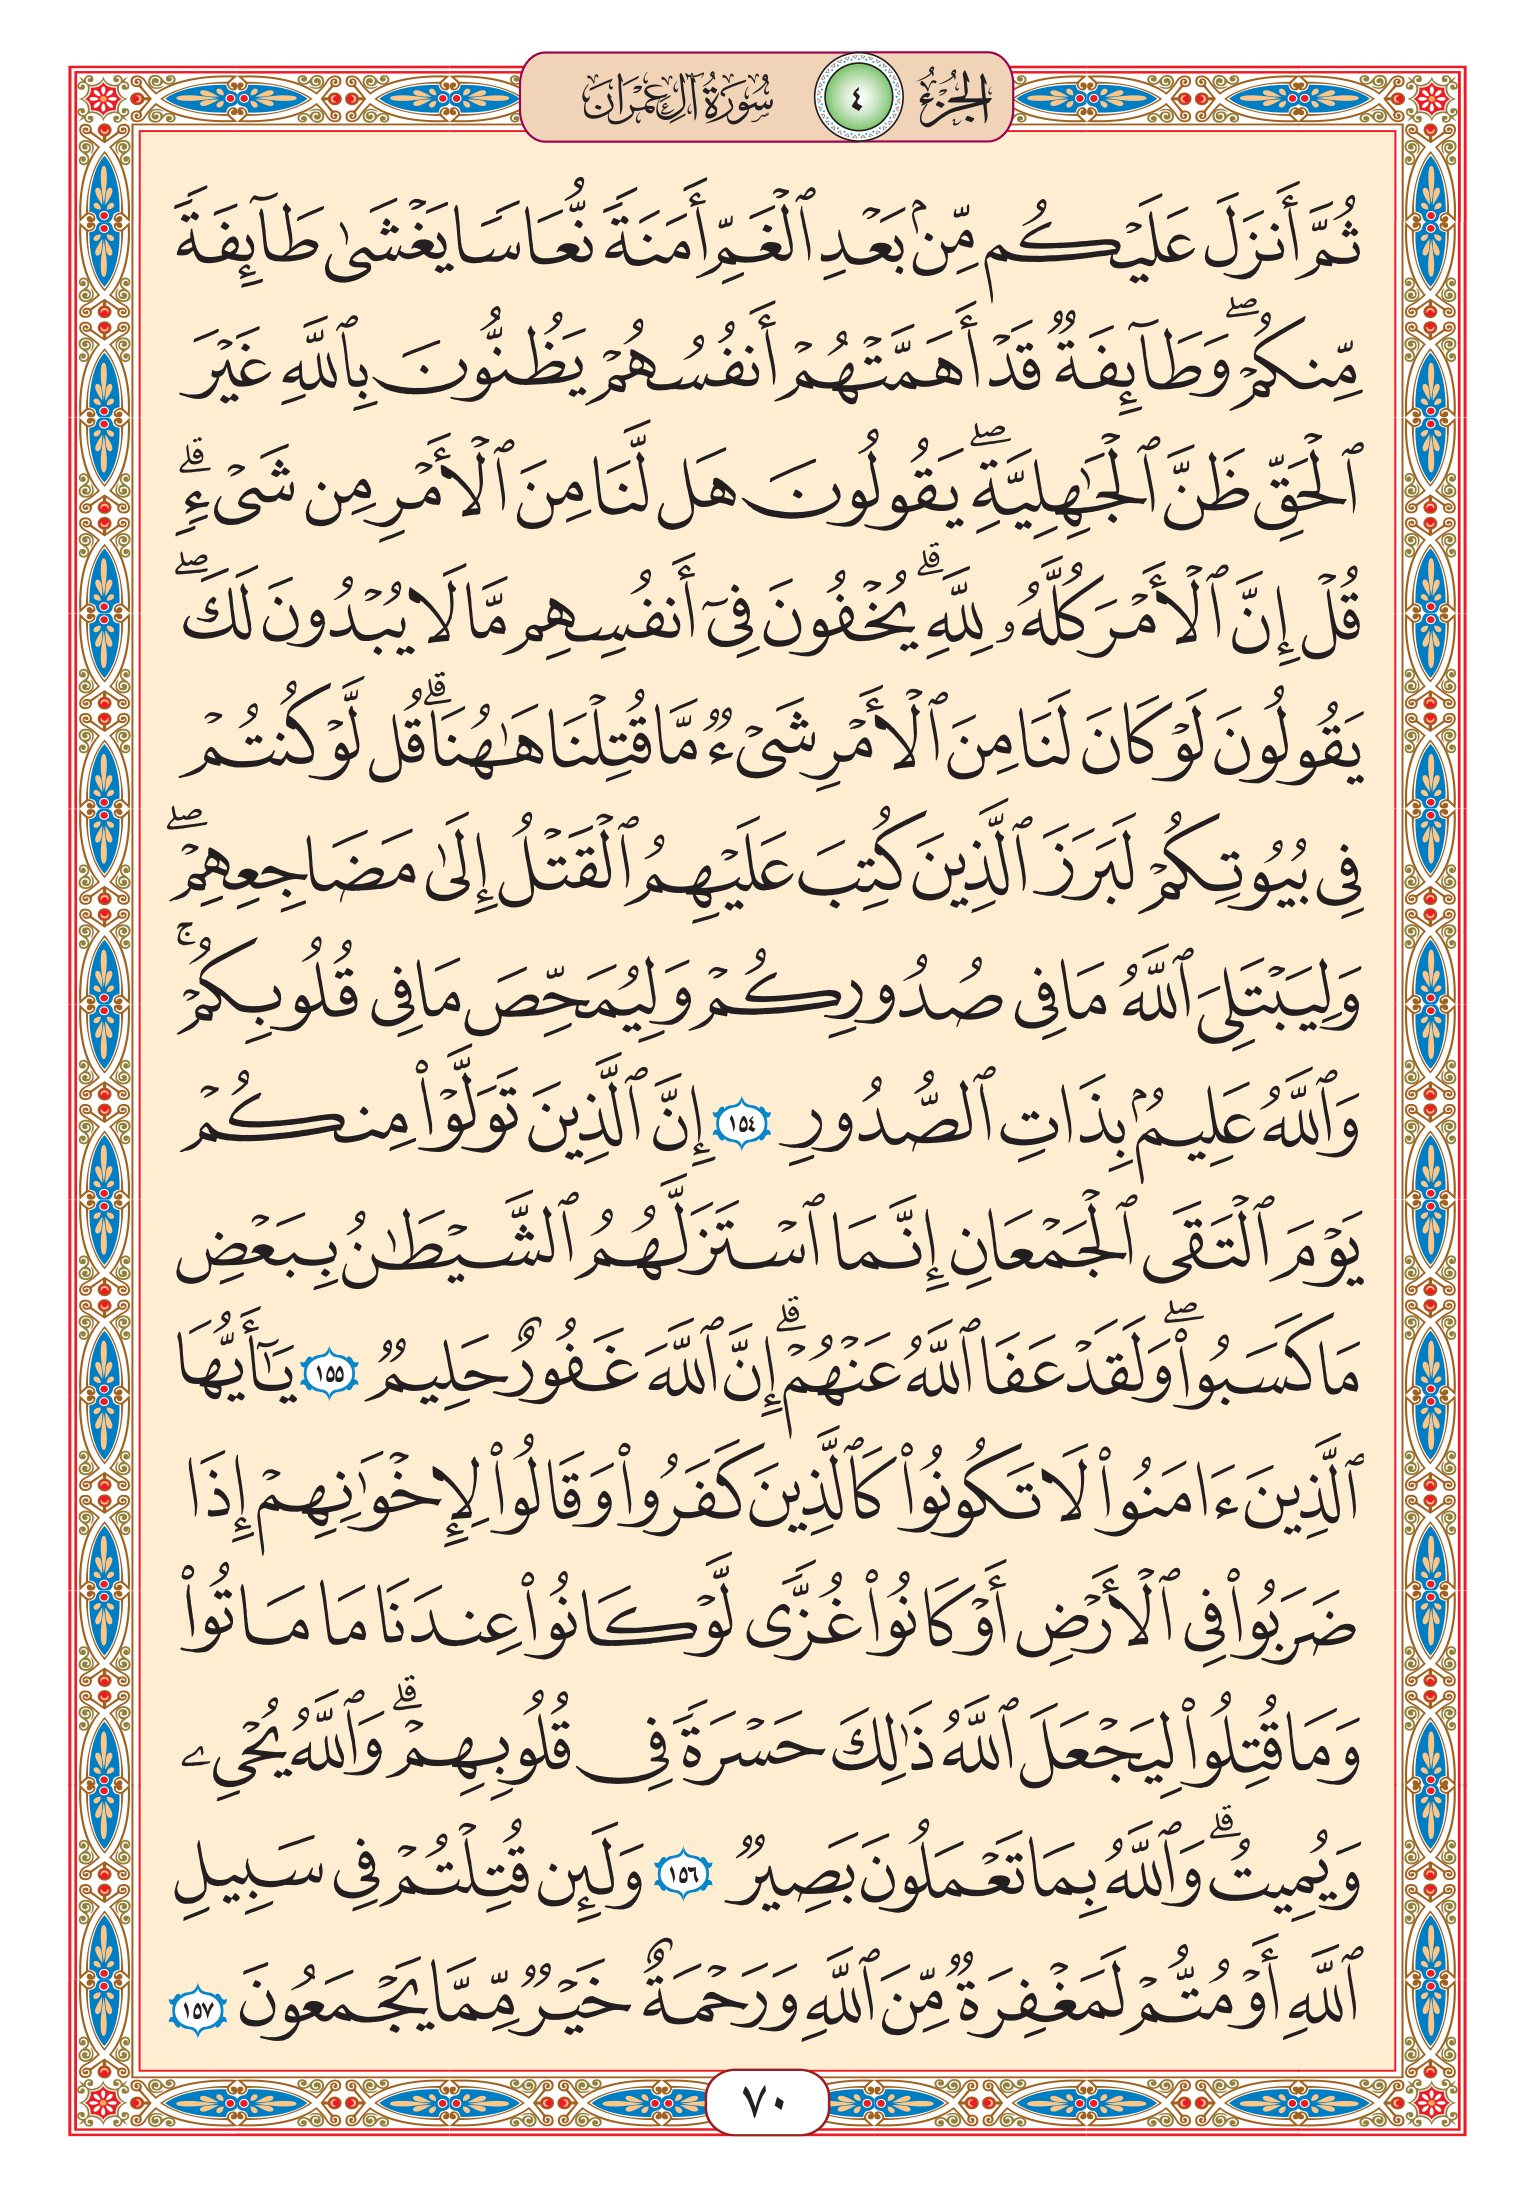 الجزء ٤ سورة آل عمران
ثُمَّ أَنزَلَ عَلَيۡكُم مِّنۢ بَعۡدِ ٱلۡغَمِّ أَمَنَةٗ نُّعَاسٗا يَغۡشَىٰ طَآئِفَةٗ
مِّنكُمۡۖ وَطَآئِفَةٞ قَدۡ أَهَمَّتۡهُمۡ أَنفُسُهُمۡ يَظُنُّونَ بِٱللَّهِ غَيۡرَ
ٱلۡحَقِّ ظَنَّ ٱلۡجَٰهِلِيَّةِۖ يَقُولُونَ هَل لَّنَا مِنَ ٱلۡأَمۡرِ مِن شَيۡءٖۗ
قُلۡ إِنَّ ٱلۡأَمۡرَ كُلَّهُۥ لِلَّهِۗ يُخۡفُونَ فِيٓ أَنفُسِهِم مَّا لَا يُبۡدُونَ لَكَۖ
يَقُولُونَ لَوۡ كَانَ لَنَا مِنَ ٱلۡأَمۡرِ شَيۡءٞ مَّا قُتِلۡنَا هَٰهُنَاۗ قُل لَّوۡ كُنتُمۡ
فِي بُيُوتِكُمۡ لَبَرَزَ ٱلَّذِينَ كُتِبَ عَلَيۡهِمُ ٱلۡقَتۡلُ إِلَىٰ مَضَاجِعِهِمۡۖ
وَلِيَبۡتَلِيَ ٱللَّهُ مَا فِي صُدُورِكُمۡ وَلِيُمَحِّصَ مَا فِي قُلُوبِكُمۡۚ
وَٱللَّهُ عَلِيمُۢ بِذَاتِ ٱلصُّدُورِ ١٥٤ إِنَّ ٱلَّذِينَ تَوَلَّوۡاْ مِنكُمۡ
يَوۡمَ ٱلۡتَقَى ٱلۡجَمۡعَانِ إِنَّمَا ٱسۡتَزَلَّهُمُ ٱلشَّيۡطَٰنُ بِبَعۡضِ
مَا كَسَبُواْۖ وَلَقَدۡ عَفَا ٱللَّهُ عَنۡهُمۡۗ إِنَّ ٱللَّهَ غَفُورٌ حَلِيمٞ ١٥٥ يَٰٓأَيُّهَا
ٱلَّذِينَ ءَامَنُواْ لَا تَكُونُواْ كَٱلَّذِينَ كَفَرُواْ وَقَالُواْ لِإِخۡوَٰنِهِمۡ إِذَا
ضَرَبُواْ فِي ٱلۡأَرۡضِ أَوۡ كَانُواْ غُزّٗى لَّوۡ كَانُواْ عِندَنَا مَا مَاتُواْ
وَمَا قُتِلُواْ لِيَجۡعَلَ ٱللَّهُ ذَٰلِكَ حَسۡرَةٗ فِي قُلُوبِهِمۡۗ وَٱللَّهُ يُحۡيِۦ
وَيُمِيتُۗ وَٱللَّهُ بِمَا تَعۡمَلُونَ بَصِيرٞ ١٥٦ وَلَئِن قُتِلۡتُمۡ فِي سَبِيلِ
ٱللَّهِ أَوۡ مُتُّمۡ لَمَغۡفِرَةٞ مِّنَ ٱللَّهِ وَرَحۡمَةٌ خَيۡرٞ مِّمَّا يَجۡمَعُونَ ١٥٧
٧٠